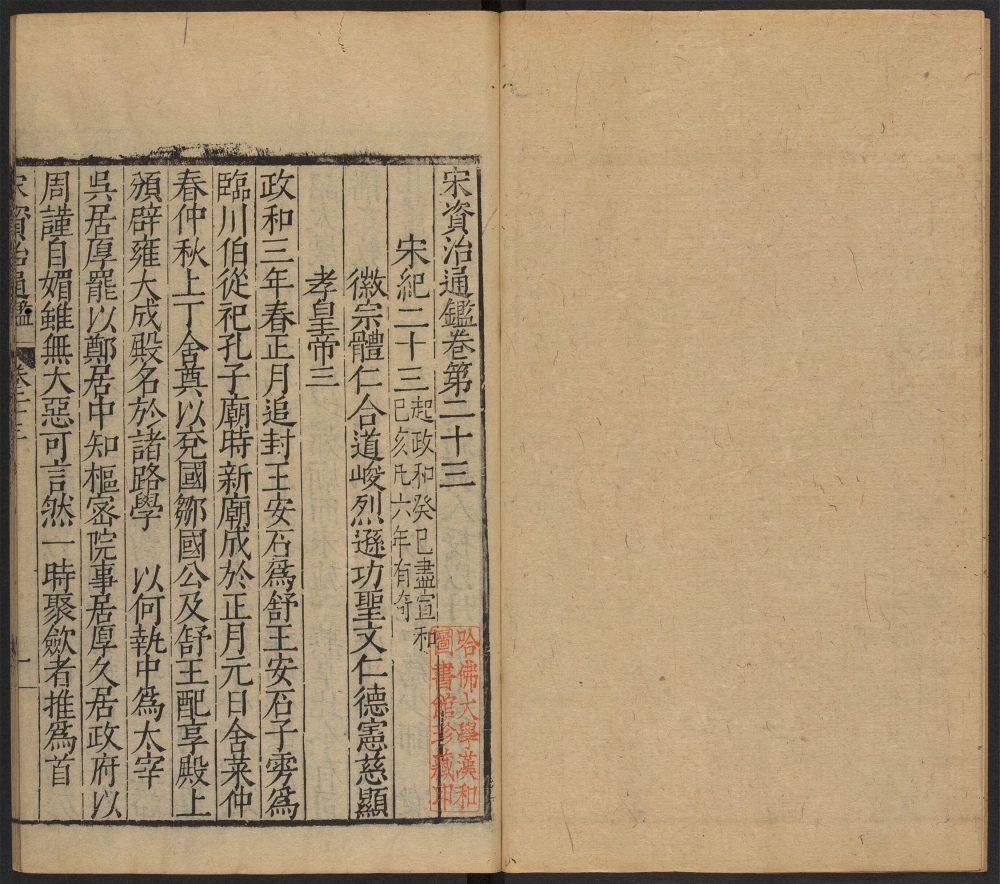 宋資治通鑑卷第二十三
宋紀二十三
起政和癸巳盡宣和
己亥凡六年有奇
徽宗體仁合道峻烈遜功聖文仁德憲慈顯
孝皇帝三
政和三年春正月追封王安石爲舒王安石子雱爲
臨川伯從祀孔子廟時新廟成於正月元日舍菜仲
春仲秋上丁舍奠以兗國鄒國公及舒王配享殿上
頒辟雍大成殿名於諸路學 以何執中爲太宰
吳居厚罷以鄭居中知樞密院事居厚久居政府以
周謹自媚雖無大惡可言然一時聚斂者推爲首
宋資治通鑑 卷二十三 一
哈佛大學漢和
圖書館珍藏印